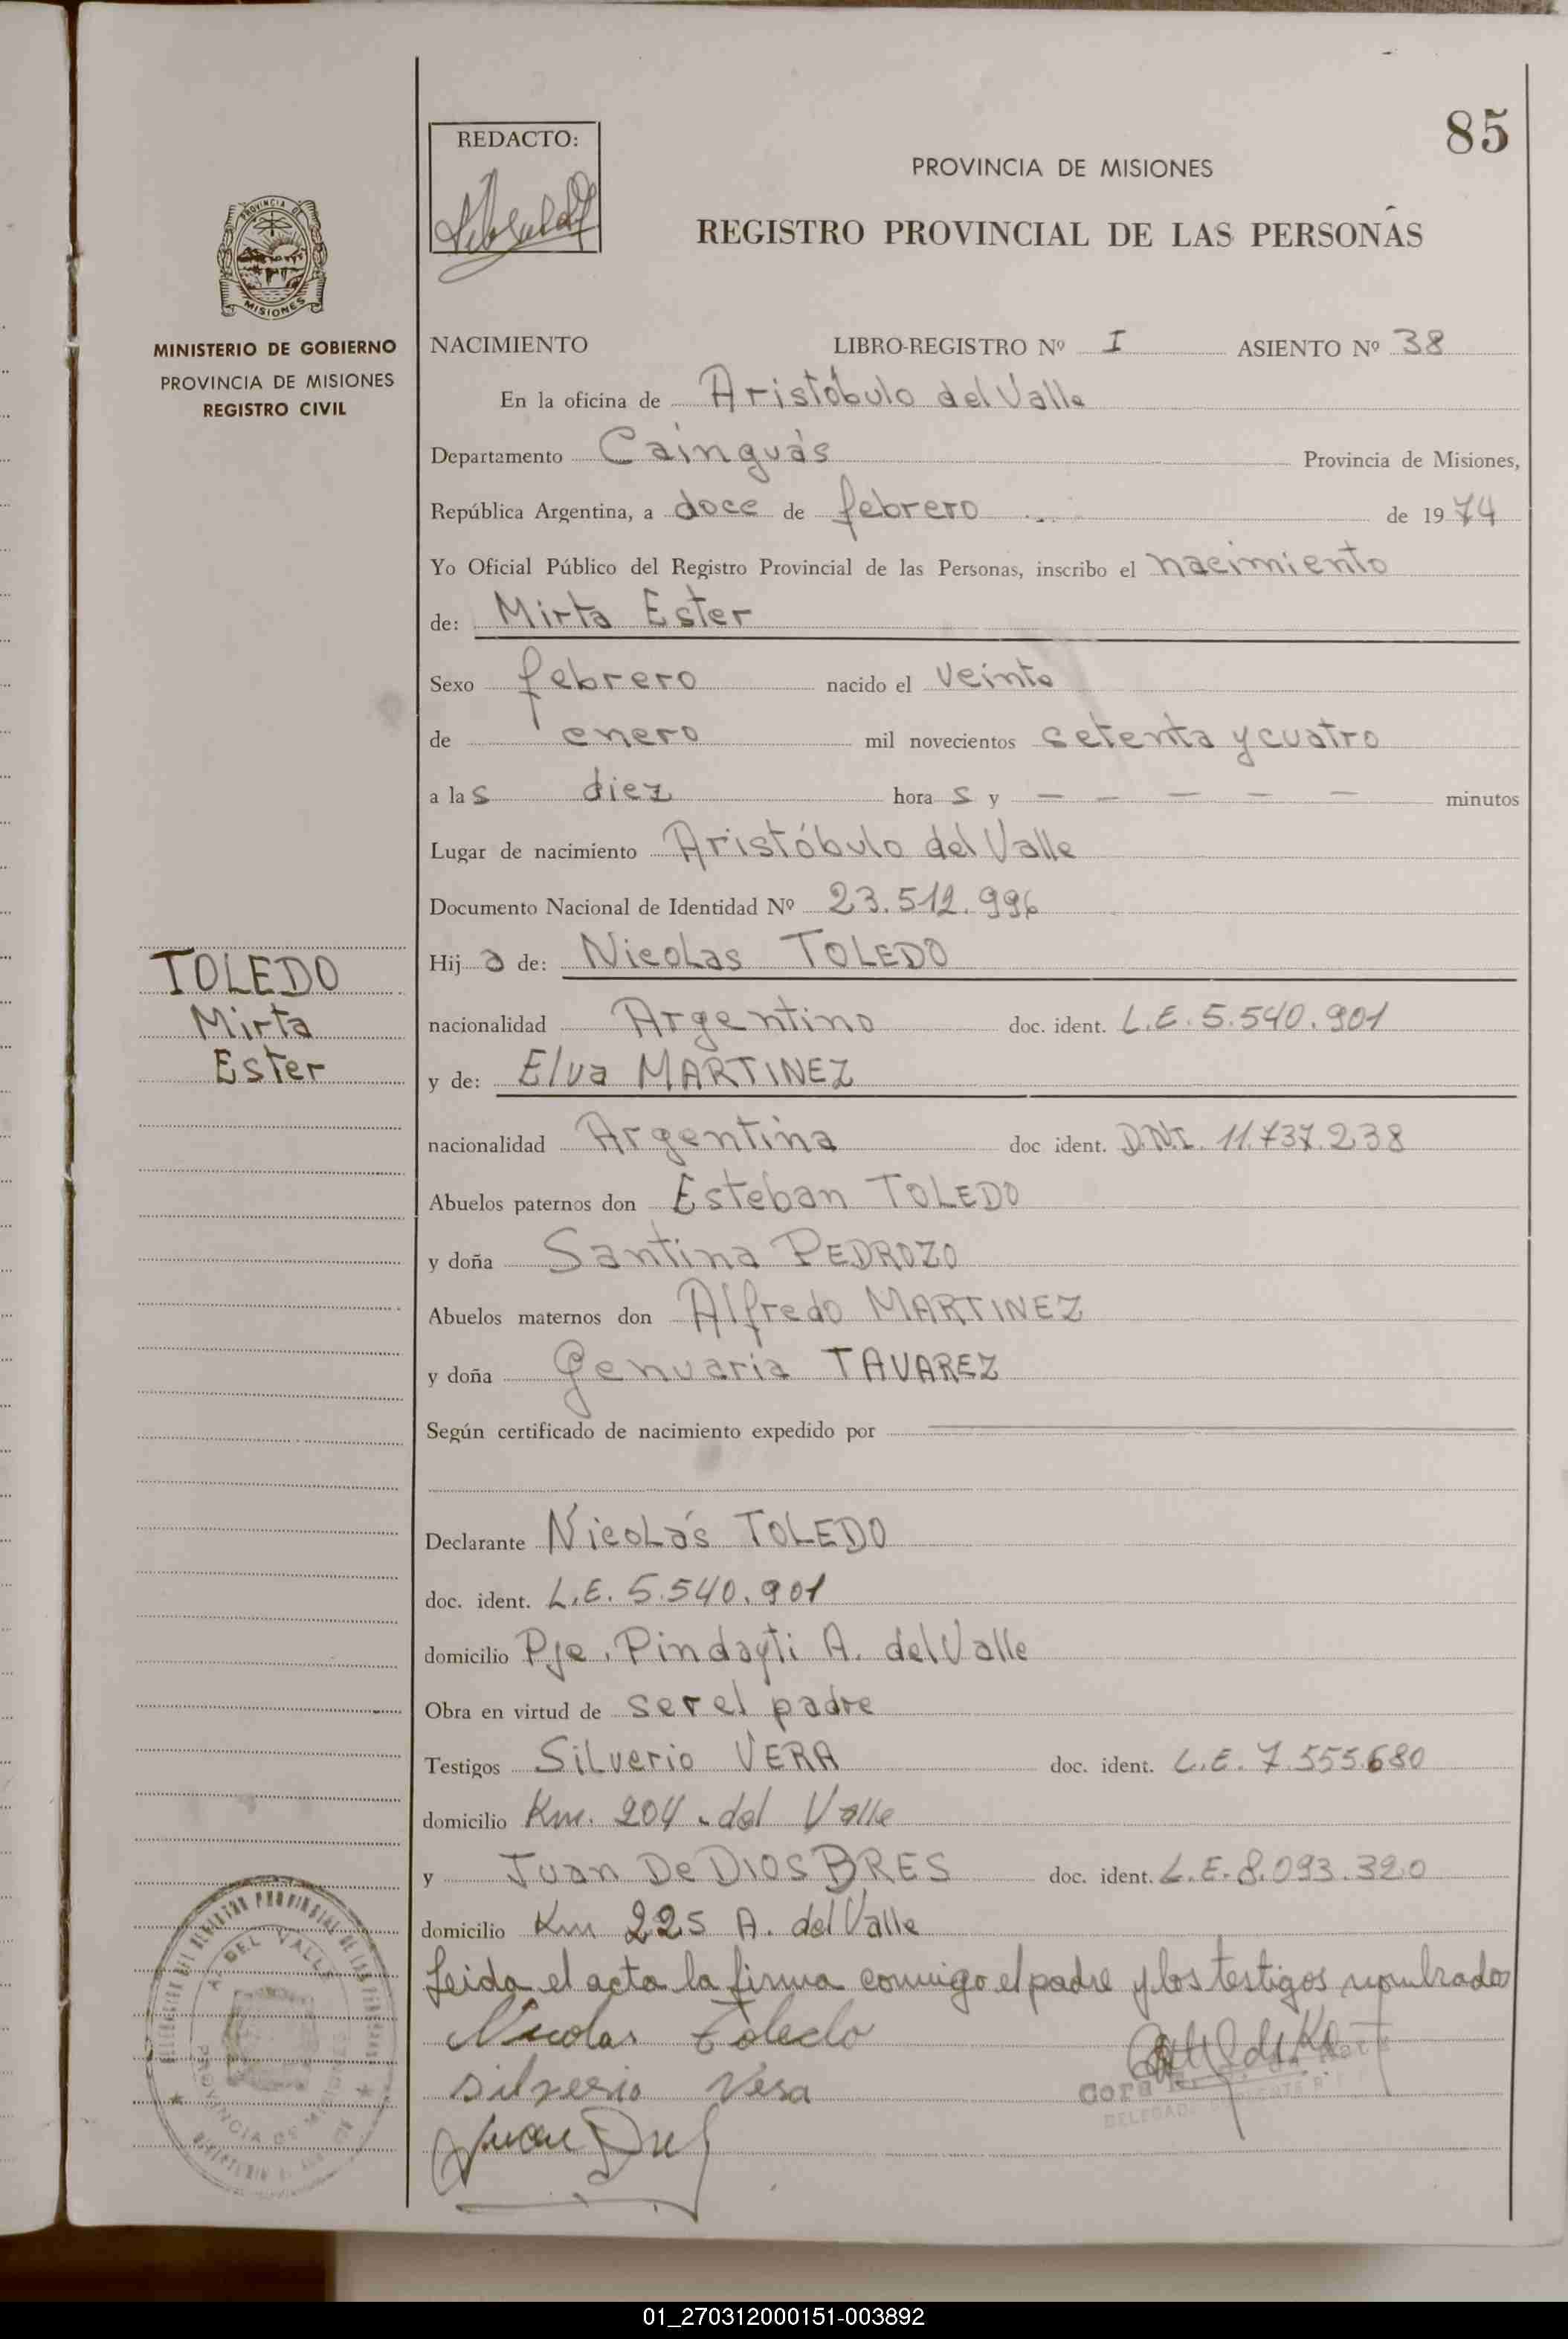 85
REDACTO:
PROVINCIA DE MISIONES
REGISTRO PROVINCIAL DE LAS PERSONAS
PROVINCIA DE
MISIONES
MINISTERIO DE GOBIERNO
PROVINCIA DE MISIONES
REGISTRO CIVIL
NACIMIENTO LIBRO-REGISTRO Nº I ASIENTO Nº 38
En la oficina de Aristóbulo del Valle
Departamento Cainguás Provincia de Misiones,
República Argentina, a doce de febrero de 1974
Yo Oficial Público del Registro Provincial de las Personas, inscribo el nacimiento
de: Mirta Ester
Sexo febrero nacido el veinte
de enero mil novecientos setenta y cuatro
a las diez horas y — — — — — minutos
Lugar de nacimiento Aristóbulo del Valle
Documento Nacional de Identidad Nº 23.512.996
TOLEDO
Mirta
Ester
Hija de: Nicolas TOLEDO
nacionalidad Argentino doc. ident. L.E. 5.540.901
y de: Elva MARTINEZ
nacionalidad Argentina doc ident. D.N.I. 11.737.238
Abuelos paternos don Esteban TOLEDO
y doña Santina PEDROZO
Abuelos maternos don Alfredo MARTINEZ
y doña Genuaria TAVAREZ
Según certificado de nacimiento expedido por
Declarante Nicolás TOLEDO
doc. ident. L.E. 5.540.901
domicilio Pje. Pindayti A. del Valle
Obra en virtud de ser el padre
Testigos Silverio VERA doc. ident. L.E. 7.555.680
domicilio Km. 204 . del Valle
y Juan De DIOS BRES doc. ident. L.E. 8.093.320
domicilio Km 225 A. del Valle
Leida el acta la firma conmigo el padre y los testigos nombrados
Nicolas Toledo
Silverio Vera
Juan
A. DEL VALLE
PROVINCIA DE MISIONES
01_270312000151-003892